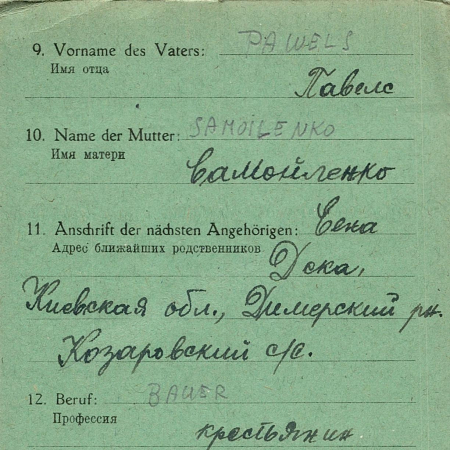 9. Vorname des Vaters: PAWELS
Имя отца
Павелс
10. Name der Mutter: SAMOILENKO
Имя матери
Самойленко
11. Anschrift der nächsten Angehörigen: Сена
Адрес ближайших родственников
Дека,
Киевская обл., Димерский рн.
Козаровский с/с.
12. Beruf: BAUER
Профессия
крестьянин